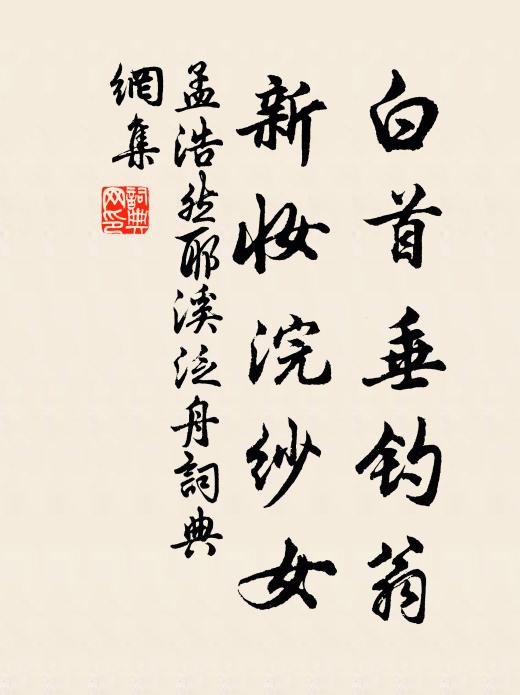 白首垂钓翁
新妆浣纱女
孟浩然耶溪泛舟詞典
網集
詞典網印